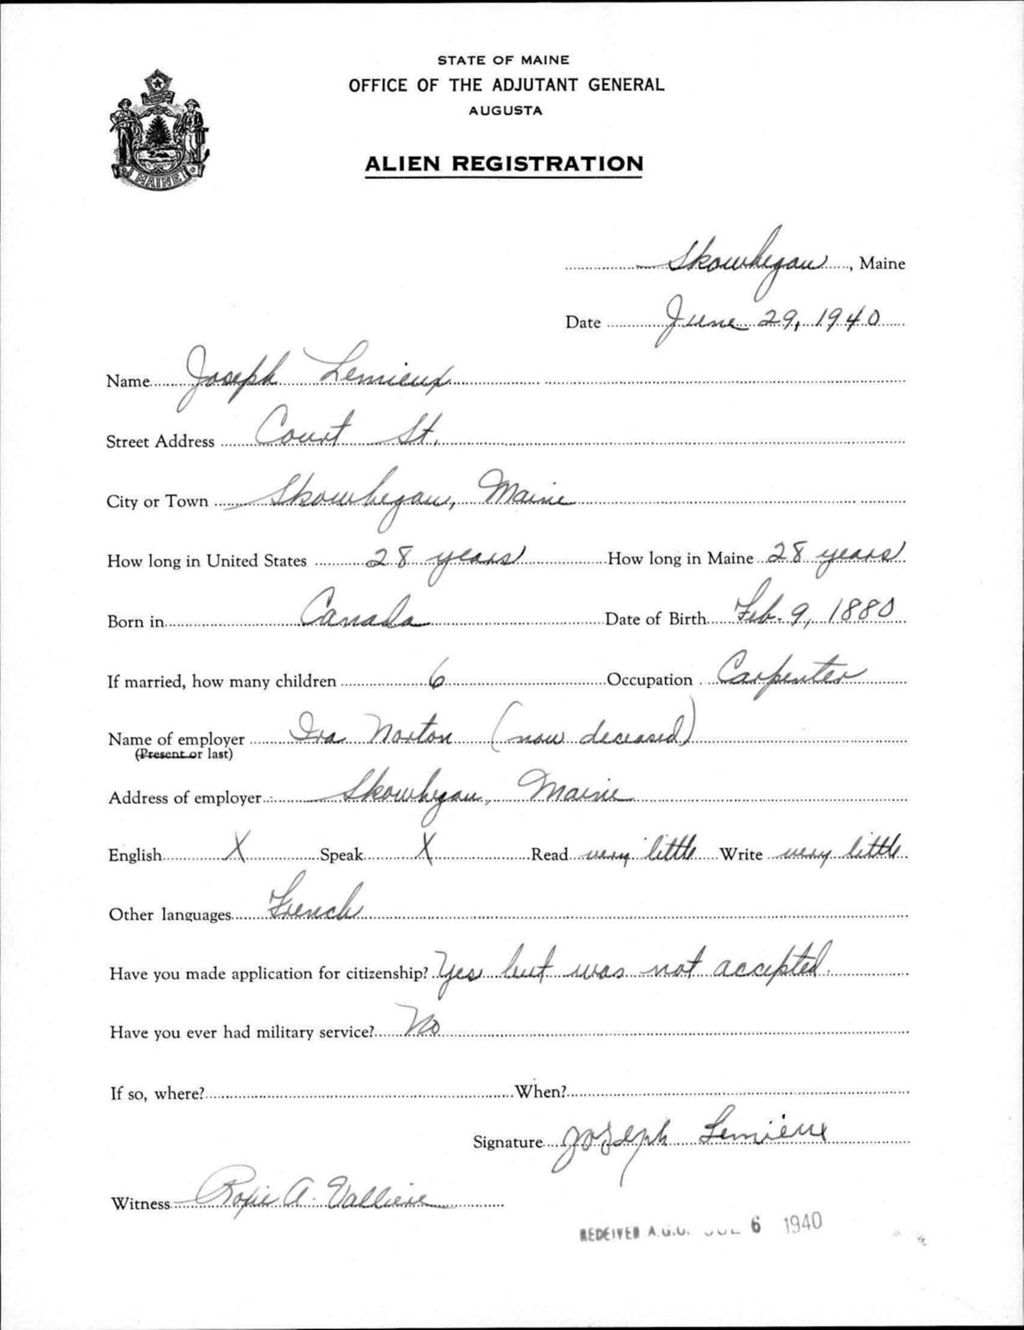 STATE OF MAINE
OFFICE OF THE ADJUTANT GENERAL
AUGUSTA
MAINE
ALIEN REGISTRATION
Skowhegan, Maine
Date June 29, 1940
Name Joseph Lemieux
Street Address Court St.
City or Town Skowhegan, Maine
How long in United States 28 years How long in Maine 28 years
Born in Canada Date of Birth Feb. 9, 1880
If married, how many children 6 Occupation Carpenter
Name of employer Ira Norton (now deceased)
(Present or last)
Address of employer Skowhegan, Maine
English X Speak X Read very little Write very little
Other languages French
Have you made application for citizenship? Yes but was not accepted.
Have you ever had military service? No
If so, where? When?
Signature Joseph Lemieux
Witness A. Valliere
RECEIVED A.G.O. JUL 6 1940